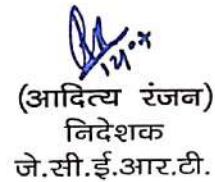 (आदित्य रंजन)
निदेशक
जे.सी.ई.आर.टी.